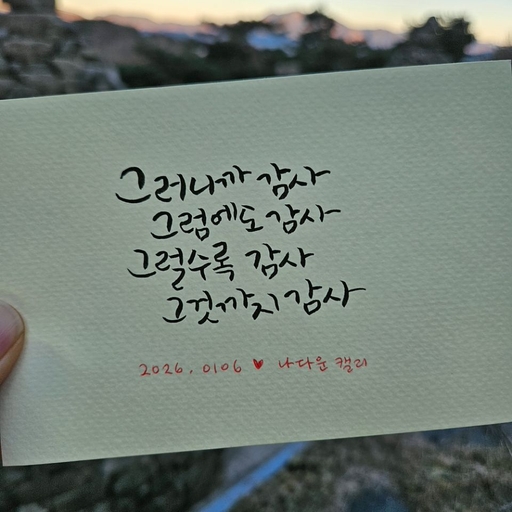 그러니까 감사
그럼에도 감사
그럴수록 감사
그것까지 감사
2026. 0106 ♥ 나다운 캘리